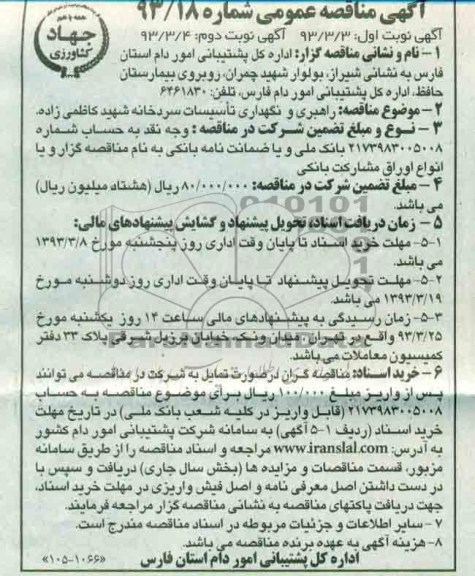 آگهی مناقصه عمومی شماره ۹۳/۱۸
آگهی نوبت اول: ۹۳/۳/۳ آگهی نوبت دوم: ۹۳/۳/۴
همه با هم
جهاد
کشاورزی
۱- نام و نشانی مناقصه گزار: اداره کل پشتیبانی امور دام استان
فارس به نشانی شیراز، بولوار شهید چمران، روبروی بیمارستان
حافظ، اداره کل پشتیبانی امور دام فارس، تلفن: ۶۴۶۱۸۳۰
۲- موضوع مناقصه: راهبری و نگهداری تأسیسات سردخانه شهید کاظمی زاده.
۳- نوع و مبلغ تضمین شرکت در مناقصه : وجه نقد به حساب شماره
۲۱۷۳۹۸۳۰۰۵۰۰۸ بانک ملی و یا ضمانت نامه بانکی به نام مناقصه گزار و یا
انواع اوراق مشارکت بانکی
۴- مبلغ تضمین شرکت در مناقصه: ۸۰/۰۰۰/۰۰۰ ریال (هشتاد میلیون ریال)
می باشد.
۵- زمان دریافت اسناد، تحویل پیشنهاد و گشایش پیشنهادهای مالی:
۵-۱- مهلت خرید اسناد تا پایان وقت اداری روز پنجشنبه مورخ ۱۳۹۳/۳/۸
می باشد.
۵-۲- مهلت تحویل پیشنهاد تا پایان وقت اداری روز دوشنبه مورخ
۱۳۹۳/۳/۱۹ می باشد.
۵-۳- زمان رسیدگی به پیشنهادهای مالی ساعت ۱۴ روز یکشنبه مورخ
۹۳/۳/۲۵ واقع در تهران، میدان ونک، خیابان برزیل شرقی پلاک ۳۳ دفتر
کمیسیون معاملات می باشد.
۶- خرید اسناد: مناقصه گران در صورت تمایل به شرکت در مناقصه می توانند
پس از واریز مبلغ ۱۰۰/۰۰۰ ریال برای موضوع مناقصه به حساب
۲۱۷۳۹۸۳۰۰۵۰۰۸ (قابل واریز در کلیه شعب بانک ملی) در تاریخ مهلت
خرید اسناد (ردیف ۱-۵ آگهی) به سامانه شرکت پشتیبانی امور دام کشور
به آدرس: www.iranslal.com مراجعه و اسناد مناقصه را از طریق سامانه
مزبور، قسمت مناقصات و مزایده ها (بخش سال جاری) دریافت و سپس با
در دست داشتن اصل معرفی نامه و اصل فیش واریزی در مهلت خرید اسناد،
جهت دریافت پاکتهای مناقصه به نشانی مناقصه گزار مراجعه فرمایند.
۷- سایر اطلاعات و جزئیات مربوطه در اسناد مناقصه مندرج است.
۸- هزینه آگهی به عهده برنده مناقصه می باشد.
اداره کل پشتیبانی امور دام استان فارس
«۱۰۵-۱۰۶۶»